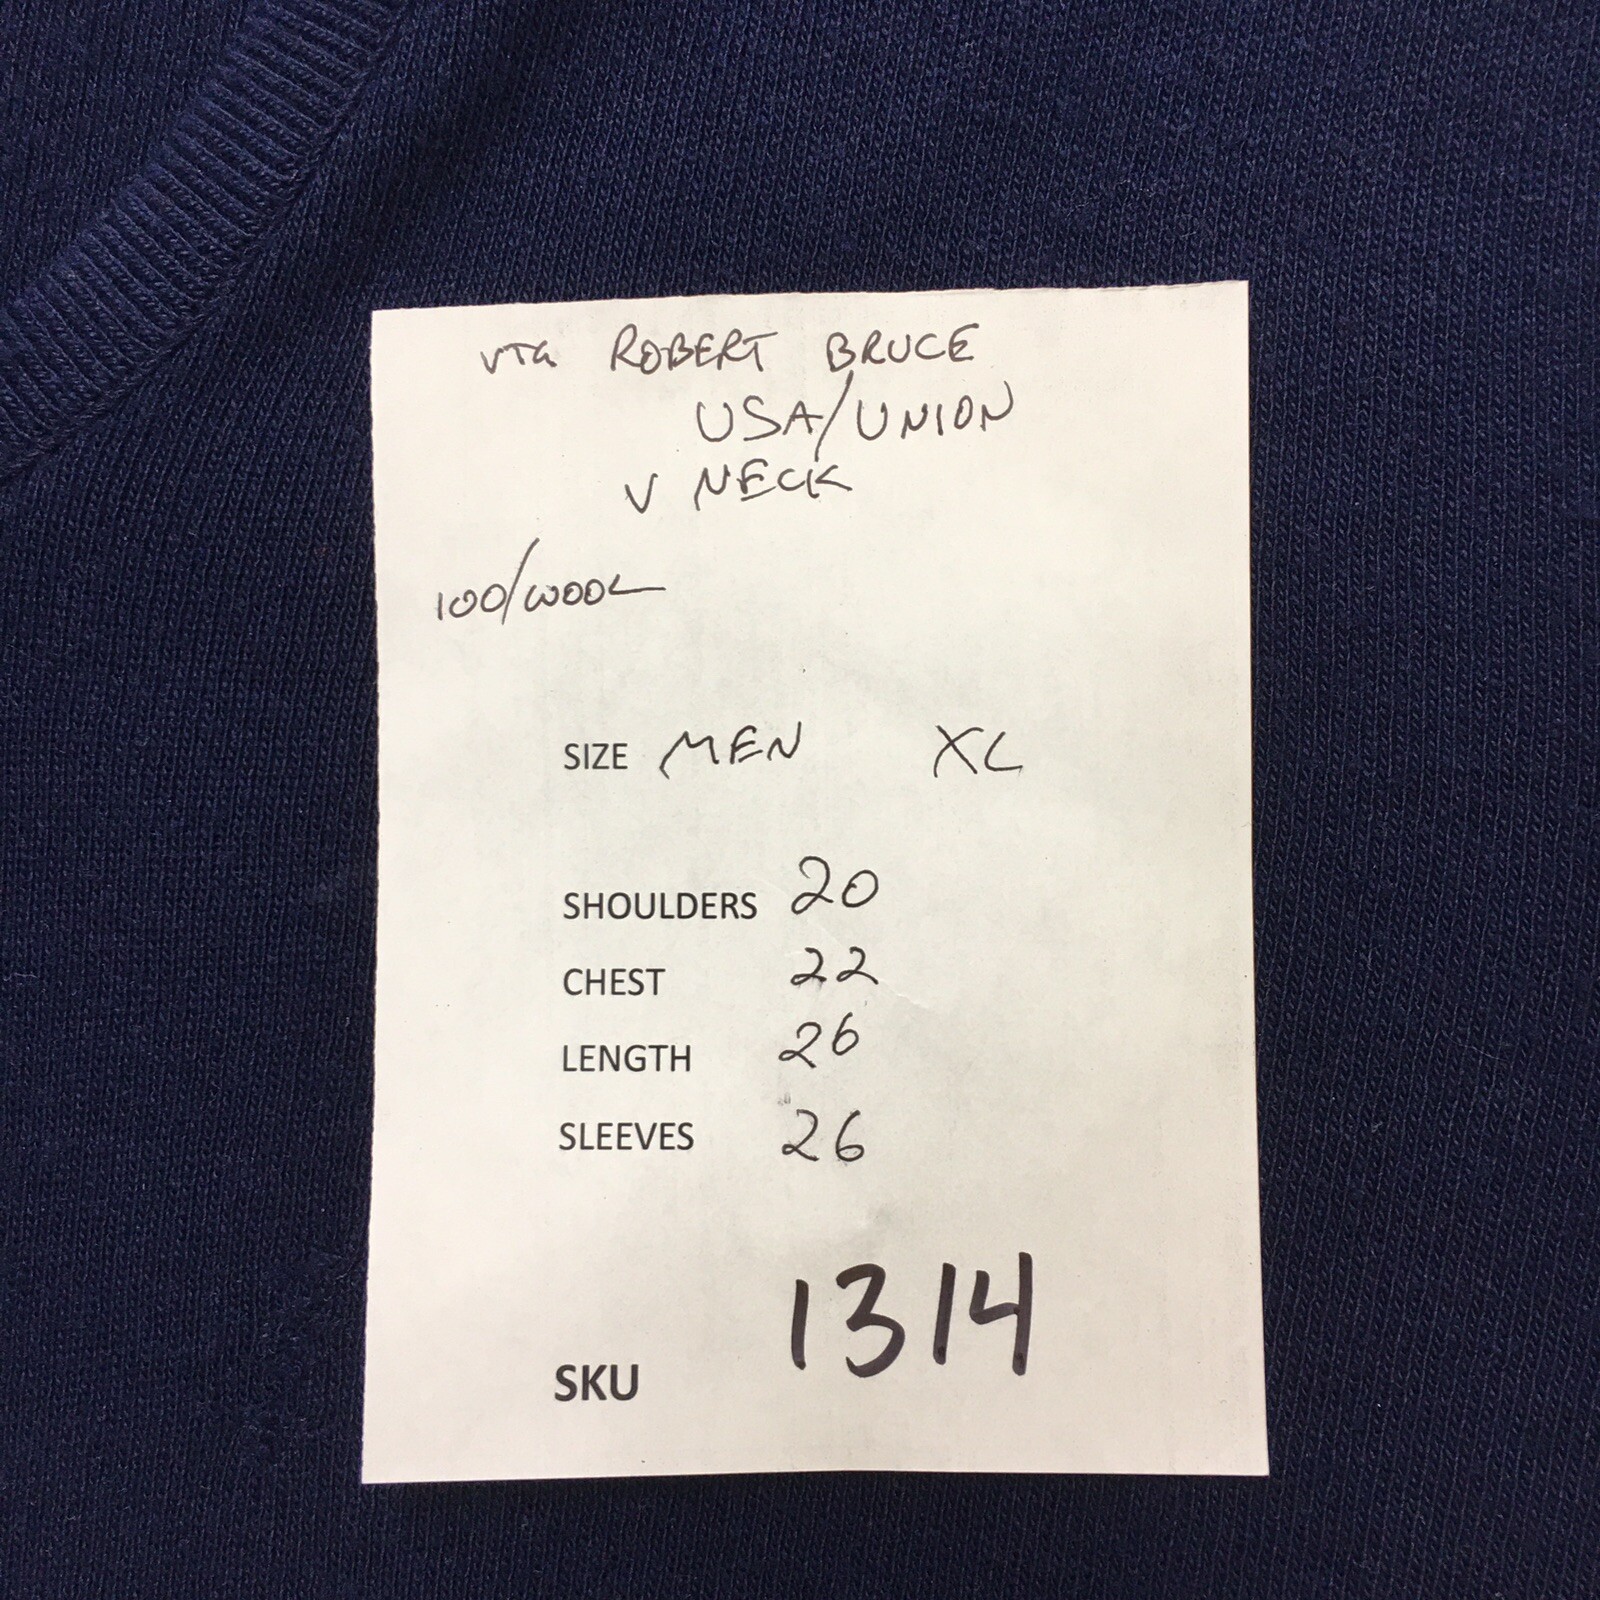 VTG ROBERT BRUCE
USA/UNION
V NECK
100/WOOL
SIZE MEN XL
SHOULDERS 20
CHEST 22
LENGTH 26
SLEEVES 26
SKU 1314